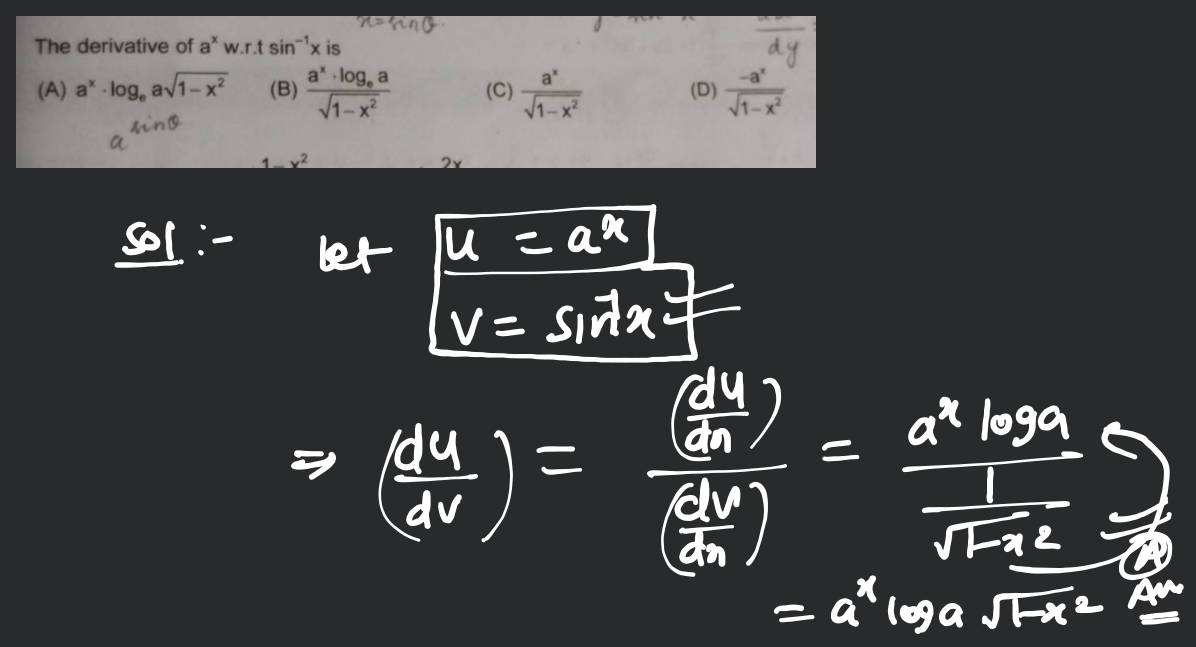 x = sinθ.
dy
The derivative of aˣ w.r.t sin⁻¹x is
(A) aˣ · logₑ a√1-x² (B) aˣ · logₑ a / √1-x² (C) aˣ / √1-x² (D) -aˣ / √1-x²
a^sinθ
1-x² 2x
Sol :- let u = aˣ
v = sin⁻¹x
⇒ (du/dv) = (du/dn) / (dv/dn) = aˣ loga / (1/√1-x²)
(A)
= aˣ loga √1-x² Ans